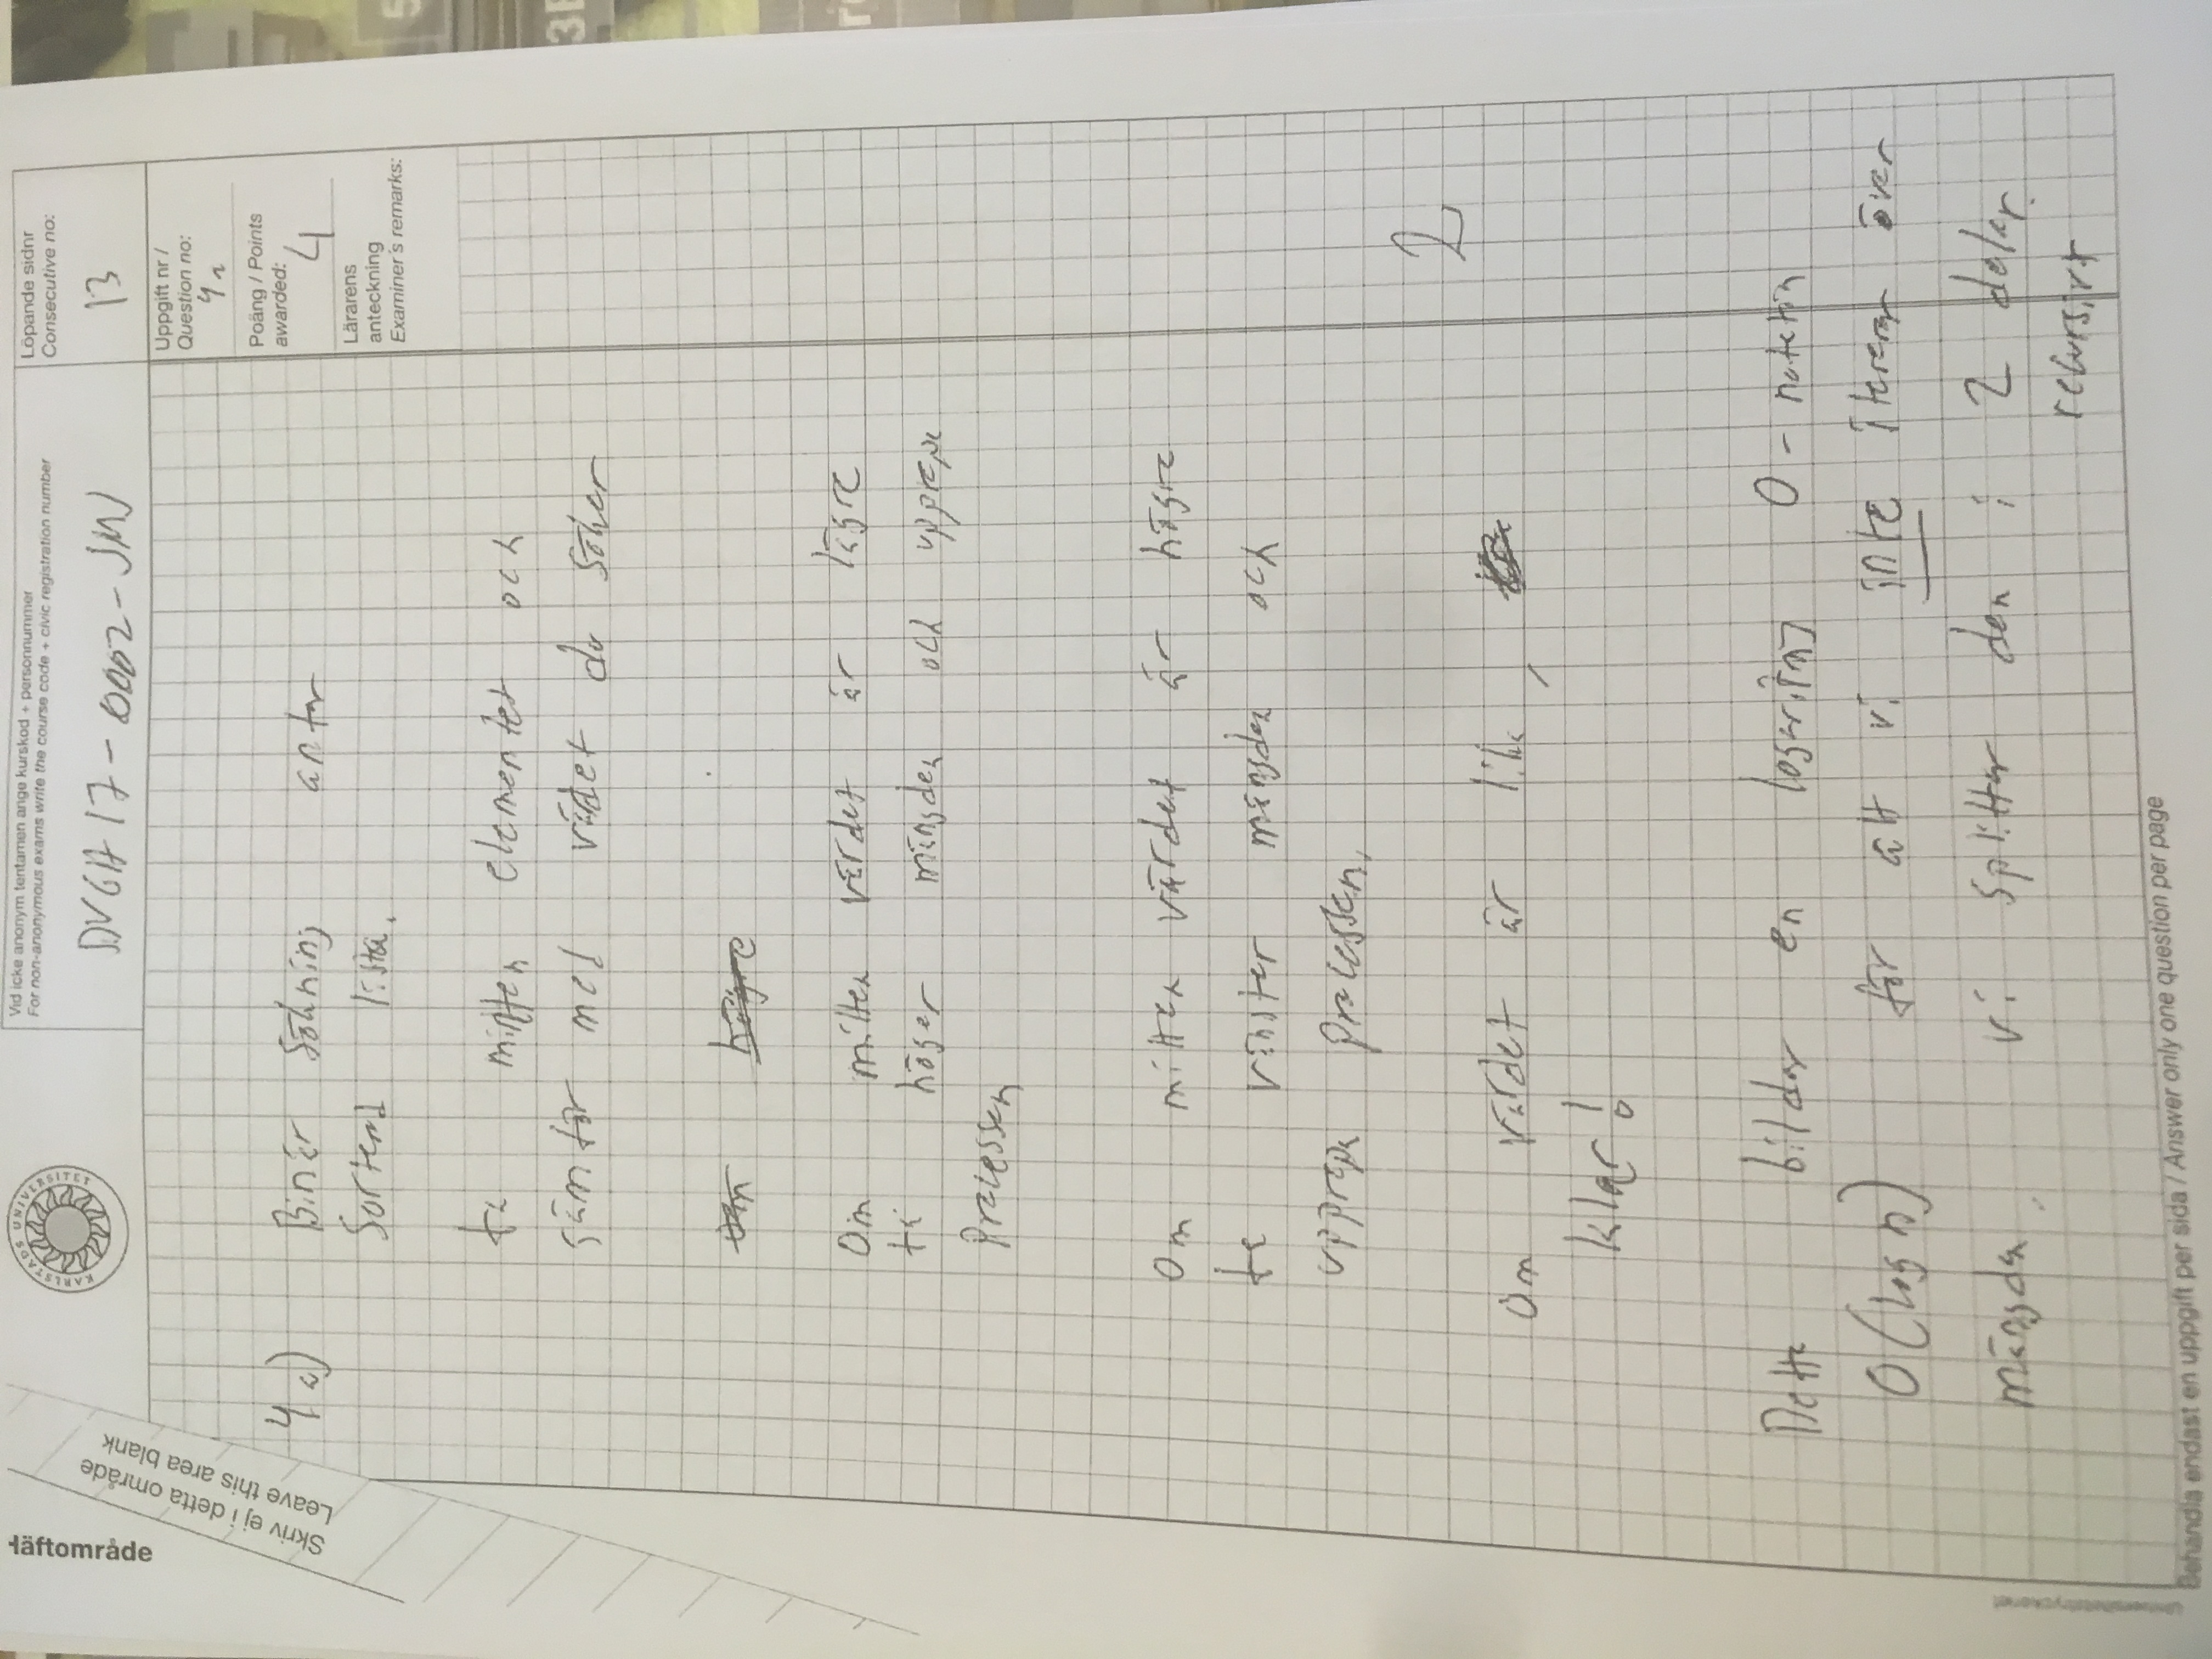 Häftområde
Skriv ej i detta område
Leave this area blank
KARLSTADS UNIVERSITET
Vid icke anonym tentamen ange kurskod + personnummer
For non-anonymous exams write the course code + civic registration number
DVGA17-0002-JMJ
Löpande sidnr
Consecutive no:
13
Uppgift nr /
Question no:
4a
Poäng / Points
awarded:
4
Lärarens
anteckning
Examiner's remarks:
4a) Binär Sökning antar
Sorterad lista.
ta mitten elementet och
jämför med värdet du söker
Om högre
Om mitten värdet är lägre
ta höger mängden och upprepa
Processen
Om mitten värdet är högre
ta vänster mängden och
upprepa processen.
2
Om värdet är lika,
klar!
Detta bildar en logaritmisk O-notation
O(log n) för att vi inte itererar över
mängden. vi splittar den i 2 delar
rekursivt
Universitetstryckeriet
Behandla endast en uppgift per sida / Answer only one question per page